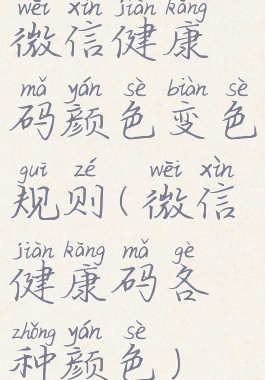 wēi xìn jiàn kāng
微信健康
mǎ yán sè biàn sè
码颜色变色
guī zé wēi xìn
规则(微信
jiàn kāng mǎ gè
健康码各
zhǒng yán sè
种颜色)